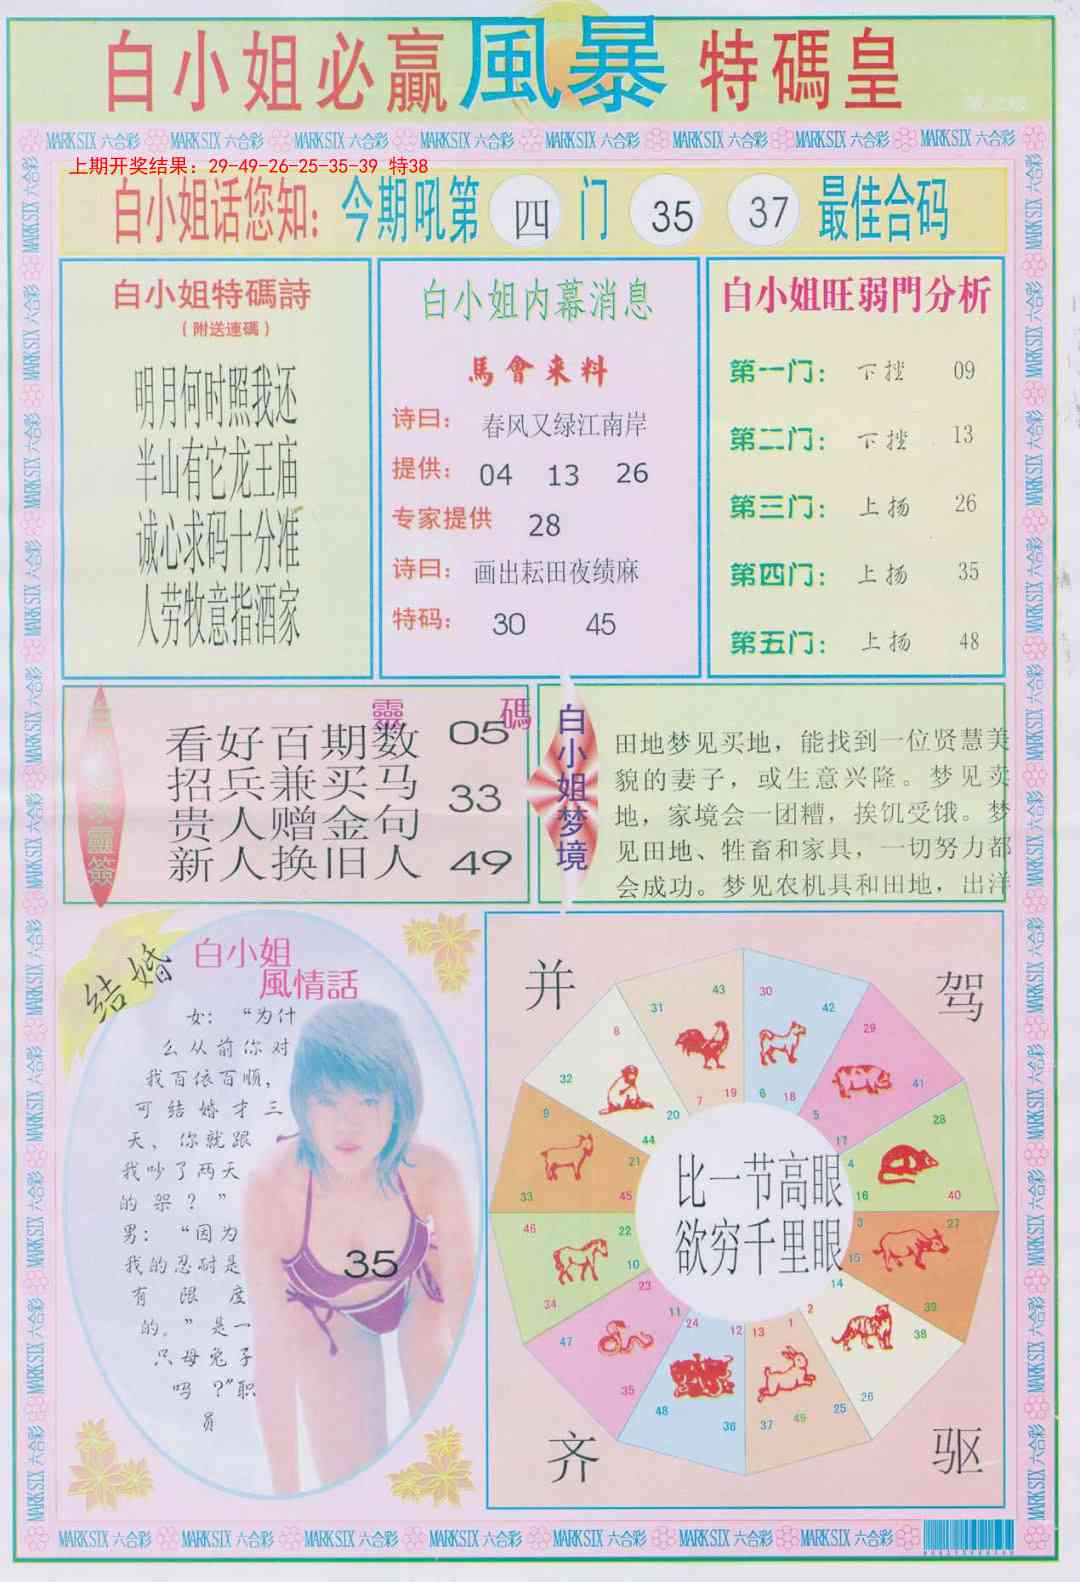 白小姐必贏風暴特碼皇
MARK SIX 六合彩 MARK SIX 六合彩 MARK SIX 六合彩 MARK SIX 六合彩 MARK SIX 六合彩 MARK SIX 六合彩 MARK SIX 六合彩 MARK SIX 六合彩
上期开奖结果：29-49-26-25-35-39 特38
白小姐话您知：今期吼第 四 门 35 37 最佳合码
白小姐特碼詩
（附送連碼）
明月何时照我还
半山有它龙王庙
诚心求码十分准
人劳牧意指酒家
白小姐内幕消息
馬會来料
诗曰： 春风又绿江南岸
提供： 04 13 26
专家提供 28
诗曰： 画出耘田夜绩麻
特码： 30 45
白小姐旺弱門分析
第一门： 下挫 09
第二门： 下挫 13
第三门： 上扬 26
第四门： 上扬 35
第五门： 上扬 48
靈 碼
看好百期数 05
招兵兼买马
贵人赠金句 33
新人换旧人 49
白小姐梦境
田地梦见买地，能找到一位贤慧美
貌的妻子，或生意兴隆。梦见卖
地，家境会一团糟，挨饥受饿。梦
见田地、牲畜和家具，一切努力都
会成功。梦见农机具和田地，出洋
结婚
白小姐
風情話
女：“为什
么从前你对
我百依百顺，
可结婚才三
天，你就跟
我吵了两天
的架？”
男：“因为
我的忍耐是
有限度
的。”是一
只母兔子
吗？”职
员
35
并 驾
齐 驱
比一节高眼
欲穷千里眼
43 31 19 7
30 42 18 6
29 41 17 5
28 40 16 4
27 39 15 3
38 26 14 2
25 37 49 13 1
36 48 24 12
47 35 23 11
46 34 22 10
45 33 21 9
44 32 20 8
MARK SIX 六合彩 MARK SIX 六合彩 MARK SIX 六合彩 MARK SIX 六合彩 MARK SIX 六合彩 MARK SIX 六合彩 MARK SIX 六合彩